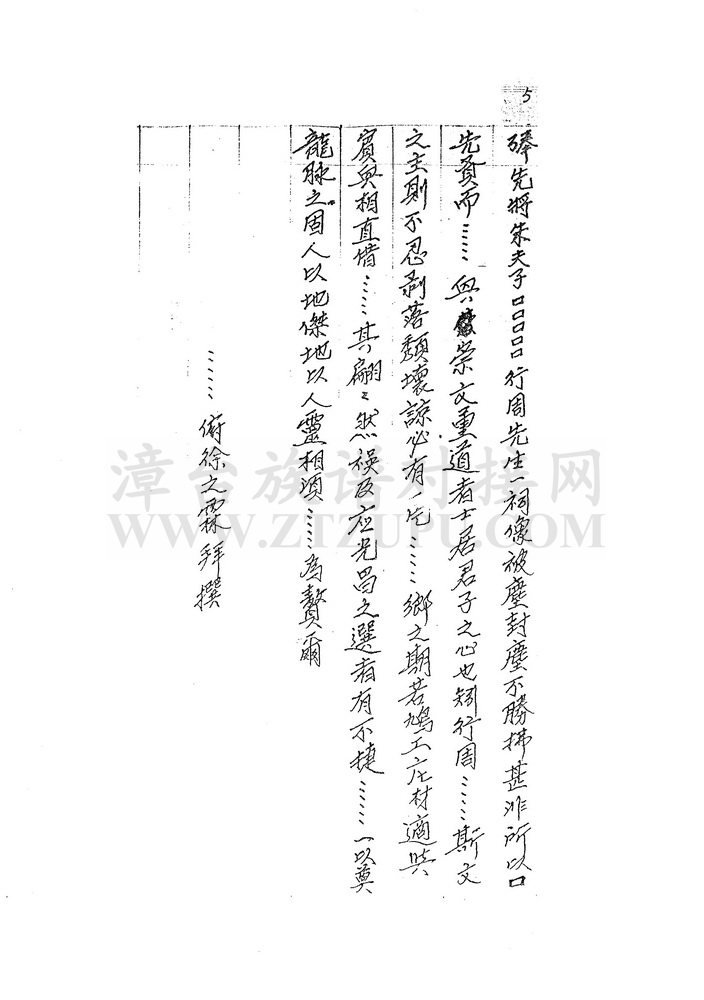 5
先將朱夫子口口口口口行周先生一祠像被塵封塵不勝拂甚非所以口
先賢而……與崇文重道者士居君子之心也矧行周……斯文
之主則不忍剥落頹壞諒必有一乞……鄉之期若鳩工庀材適與
賓興相直借……其翩〻然禄及応光昌之選者有不捷……一以奠
龍脉之固人以地傑地以人靈相須……為贅爾
……徐之霖拜撰
漳台族谱对接网
WWW.ZTZUPU.COM